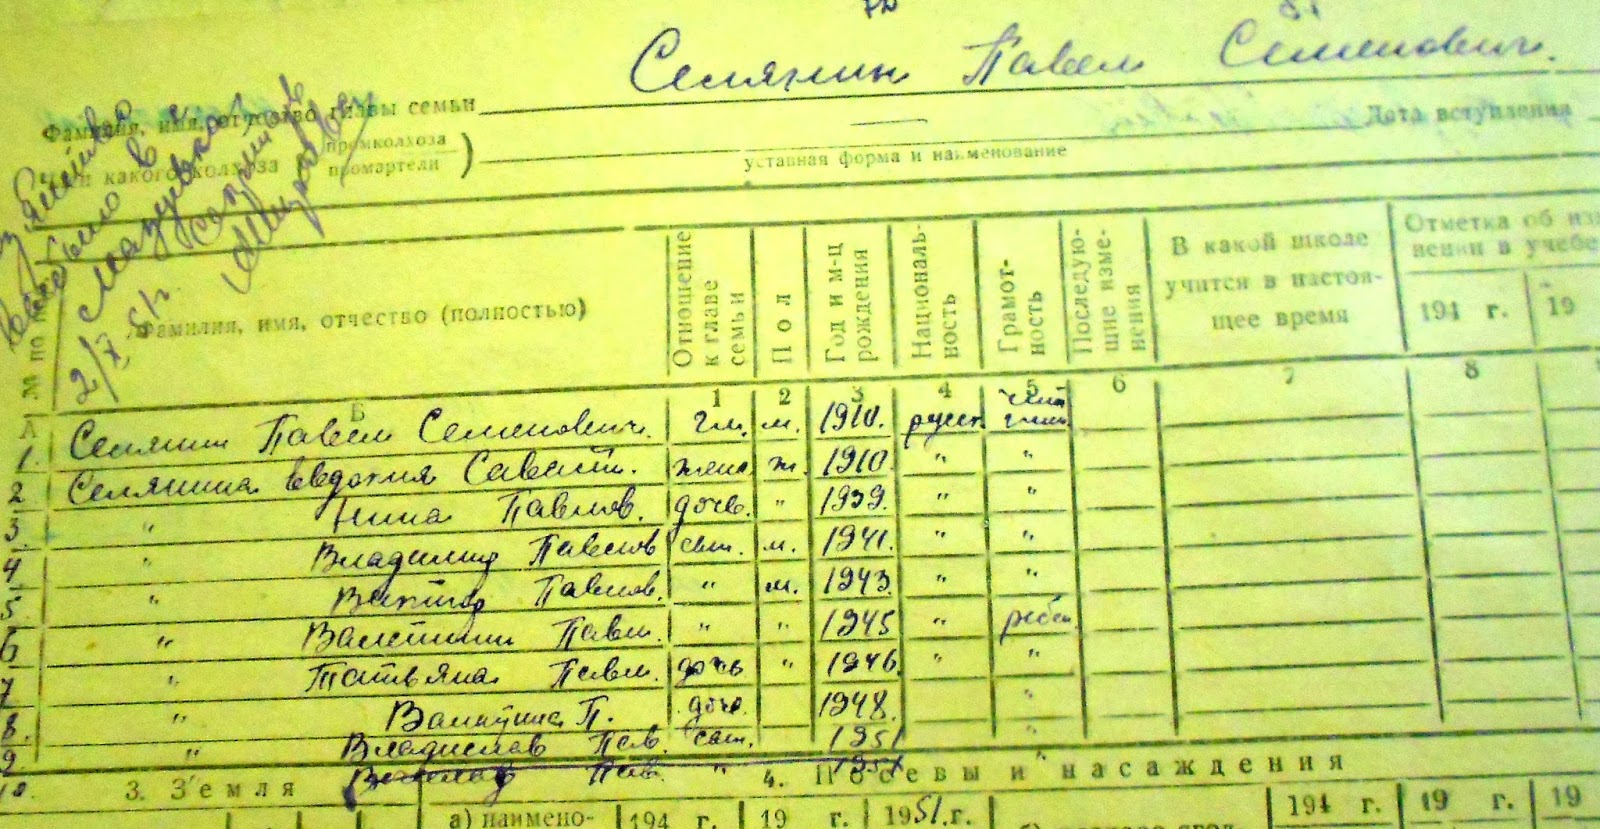 Селянин Павел Семенович.
Фамилия, имя, отчество главы семьи
Дата вступления
какого колхоза промколхоза промартели )
уставная форма и наименование
2/X 51 г.
№ по
Фамилия, имя, отчество (полностью)
Отношение к главе семьи
Пол
Год и м-ц рождения
Националь-ность
Грамот-ность
Последую-щие изме-нения
В какой школе учится в настоя-щее время
Отметка об из нении в учебе
194 г. 19
Б 1 2 3 4 5 6 7 8
1. Селянин Павел Семенович. гл. м. 1910. русск.
2 Селянина Евдокия жена ж. 1910 " "
3 " Нина Павлов. дочь. " 1939. " "
4 " Владимир Павлов сын. м. 1941. " "
5 " Виктор Павлов. " м. 1943. " "
6 " Валентин Павл. " " 1945 " ребен.
7 " Татьяна Павл. дочь " 1946. " "
8. " П. дочь. 1948. "
9 " Владислав Пав. сын. 1951 "
10. Пав. " 1951 "
3. Земля
4. Посевы и насаждения
а) наимено-
194 г.
19 г.
1951 г.
194 г.
19 г.
19